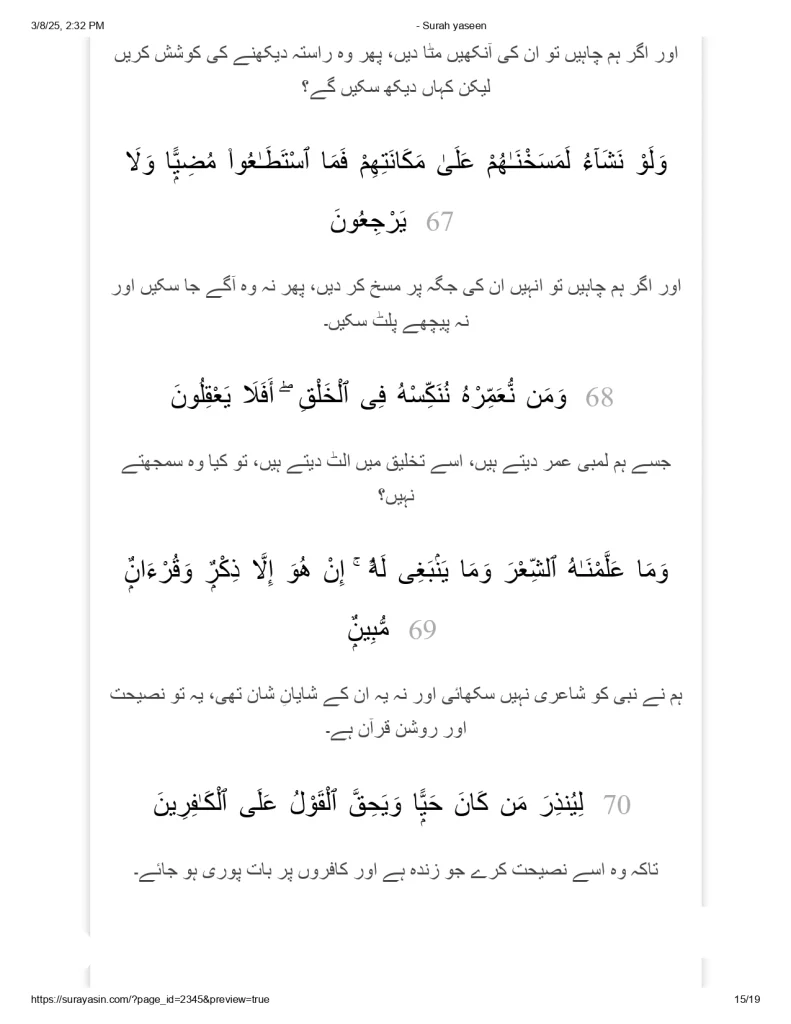 3/8/25, 2:32 PM - Surah yaseen
اور اگر ہم چاہیں تو ان کی آنکھیں مٹا دیں، پھر وہ راستہ دیکھنے کی کوشش کریں
لیکن کہاں دیکھ سکیں گے؟
وَلَوْ نَشَآءُ لَمَسَخْنَـٰهُمْ عَلَىٰ مَكَانَتِهِمْ فَمَا ٱسْتَطَـٰعُوا۟ مُضِيًّۭا وَلَا
يَرْجِعُونَ 67
اور اگر ہم چاہیں تو انہیں ان کی جگہ پر مسخ کر دیں، پھر نہ وہ آگے جا سکیں اور
نہ پیچھے پلٹ سکیں۔
68 وَمَن نُّعَمِّرْهُ نُنَكِّسْهُ فِى ٱلْخَلْقِ ۖ أَفَلَا يَعْقِلُونَ
جسے ہم لمبی عمر دیتے ہیں، اسے تخلیق میں الٹ دیتے ہیں، تو کیا وہ سمجھتے
نہیں؟
وَمَا عَلَّمْنَـٰهُ ٱلشِّعْرَ وَمَا يَنۢبَغِى لَهُۥٓ ۚ إِنْ هُوَ إِلَّا ذِكْرٌۭ وَقُرْءَانٌۭ
مُّبِينٌۭ 69
ہم نے نبی کو شاعری نہیں سکھائی اور نہ یہ ان کے شایانِ شان تھی، یہ تو نصیحت
اور روشن قرآن ہے۔
70 لِيُنذِرَ مَن كَانَ حَيًّۭا وَيَحِقَّ ٱلْقَوْلُ عَلَى ٱلْكَـٰفِرِينَ
تاکہ وہ اسے نصیحت کرے جو زندہ ہے اور کافروں پر بات پوری ہو جائے۔
https://surayasin.com/?page_id=2345&preview=true 15/19